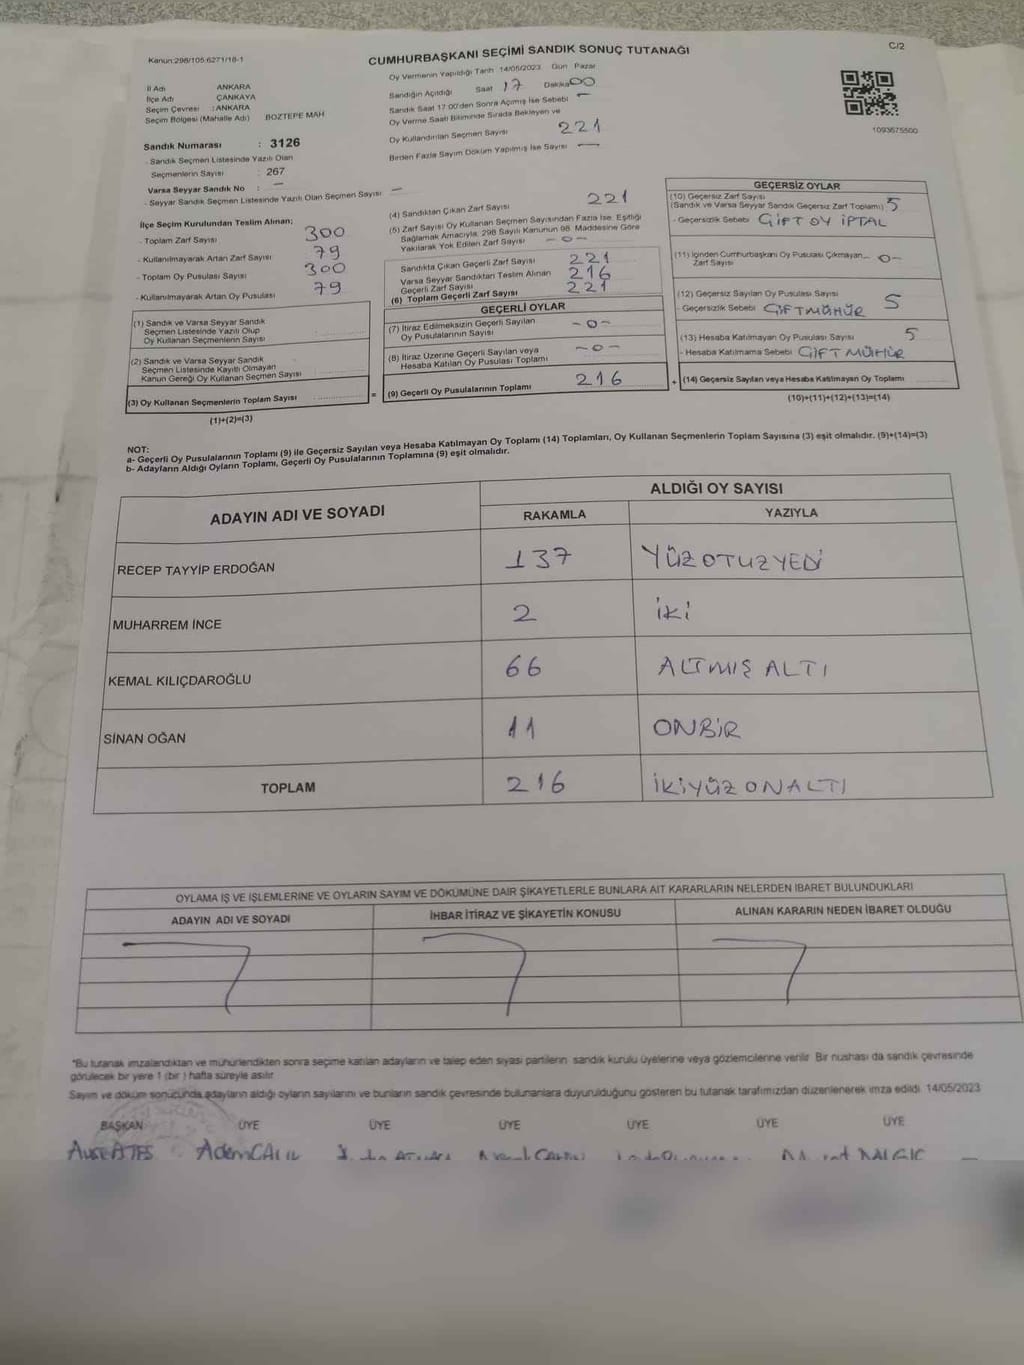 Kanun:298/105.6271/18-1
CUMHURBAŞKANI SEÇİMİ SANDIK SONUÇ TUTANAĞI
C/2
Oy Vermenin Yapıldığı Tarih 14/05/2023 Gün Pazar
İl Adı ANKARA
İlçe Adı ÇANKAYA
Seçim Çevresi : ANKARA
Seçim Bölgesi (Mahalle Adı) BOZTEPE MAH
Sandığın Açıldığı Saat 17 Dakika 00
Sandık Saat 17.00'den Sonra Açılmış İse Sebebi —
Oy Verme Saati Bitiminde Sırada Bekleyen ve
Oy Kullandırılan Seçmen Sayısı 221
Birden Fazla Sayım Döküm Yapılmış İse Sayısı —
1093675500
Sandık Numarası : 3126
- Sandık Seçmen Listesinde Yazılı Olan
Seçmenlerin Sayısı : 267
Varsa Seyyar Sandık No : —
- Seyyar Sandık Seçmen Listesinde Yazılı Olan Seçmen Sayısı —
İlçe Seçim Kurulundan Teslim Alınan;
- Toplam Zarf Sayısı 300
- Kullanılmayarak Artan Zarf Sayısı 79
- Toplam Oy Pusulası Sayısı 300
- Kullanılmayarak Artan Oy Pusulası 79
(1) Sandık ve Varsa Seyyar Sandık
Seçmen Listesinde Yazılı Olup
Oy Kullanan Seçmenlerin Sayısı
(2) Sandık ve Varsa Seyyar Sandık
Seçmen Listesinde Kayıtlı Olmayan
Kanun Gereği Oy Kullanan Seçmen Sayısı
(3) Oy Kullanan Seçmenlerin Toplam Sayısı
(1)+(2)=(3)
=
(4) Sandıktan Çıkan Zarf Sayısı 221
(5) Zarf Sayısı Oy Kullanan Seçmen Sayısından Fazla İse, Eşitliği
Sağlamak Amacıyla, 298 Sayılı Kanunun 98. Maddesine Göre
Yakılarak Yok Edilen Zarf Sayısı -0-
Sandıkta Çıkan Geçerli Zarf Sayısı 221
Varsa Seyyar Sandıktan Teslim Alınan
Geçerli Zarf Sayısı 216
(6) Toplam Geçerli Zarf Sayısı 221
GEÇERLİ OYLAR
(7) İtiraz Edilmeksizin Geçerli Sayılan
Oy Pusulalarının Sayısı -0-
(8) İtiraz Üzerine Geçerli Sayılan veya
Hesaba Katılan Oy Pusulası Toplamı -0-
(9) Geçerli Oy Pusulalarının Toplamı 216
+
GEÇERSİZ OYLAR
(10) Geçersiz Zarf Sayısı
(Sandık ve Varsa Seyyar Sandık Geçersiz Zarf Toplamı) 5
- Geçersizlik Sebebi ÇİFT OY İPTAL
(11) İçinden Cumhurbaşkanı Oy Pusulası Çıkmayan
Zarf Sayısı -0-
(12) Geçersiz Sayılan Oy Pusulası Sayısı 5
- Geçersizlik Sebebi ÇİFT MÜHÜR
(13) Hesaba Katılmayan Oy Pusulası Sayısı 5
- Hesaba Katılmama Sebebi ÇİFT MÜHÜR
(14) Geçersiz Sayılan veya Hesaba Katılmayan Oy Toplamı
(10)+(11)+(12)+(13)=(14)
NOT:
a- Geçerli Oy Pusulalarının Toplamı (9) ile Geçersiz Sayılan veya Hesaba Katılmayan Oy Toplamı (14) Toplamları, Oy Kullanan Seçmenlerin Toplam Sayısına (3) eşit olmalıdır. (9)+(14)=(3)
b- Adayların Aldığı Oyların Toplamı, Geçerli Oy Pusulalarının Toplamına (9) eşit olmalıdır.
ADAYIN ADI VE SOYADI
ALDIĞI OY SAYISI
RAKAMLA YAZIYLA
RECEP TAYYİP ERDOĞAN 137 YÜZ OTUZ YEDİ
MUHARREM İNCE 2 İKİ
KEMAL KILIÇDAROĞLU 66 ALTMIŞ ALTI
SİNAN OĞAN 11 ONBİR
TOPLAM 216 İKİYÜZ ONALTI
OYLAMA İŞ VE İŞLEMLERİNE VE OYLARIN SAYIM VE DÖKÜMÜNE DAİR ŞİKAYETLERLE BUNLARA AİT KARARLARIN NELERDEN İBARET BULUNDUKLARI
ADAYIN ADI VE SOYADI İHBAR İTİRAZ VE ŞİKAYETİN KONUSU ALINAN KARARIN NEDEN İBARET OLDUĞU
*Bu tutanak imzalandıktan ve mühürlendikten sonra seçime katılan adayların ve talep eden siyasi partilerin sandık kurulu üyelerine veya gözlemcilerine verilir. Bir nüshası da sandık çevresinde
görülecek bir yere 1 (bir) hafta süreyle asılır
Sayım ve döküm sonucunda adayların aldığı oyların sayılarını ve bunların sandık çevresinde bulunanlara duyurulduğunu gösteren bu tutanak tarafımızdan düzenlenerek imza edildi. 14/05/2023
BAŞKAN ÜYE ÜYE ÜYE ÜYE ÜYE ÜYE